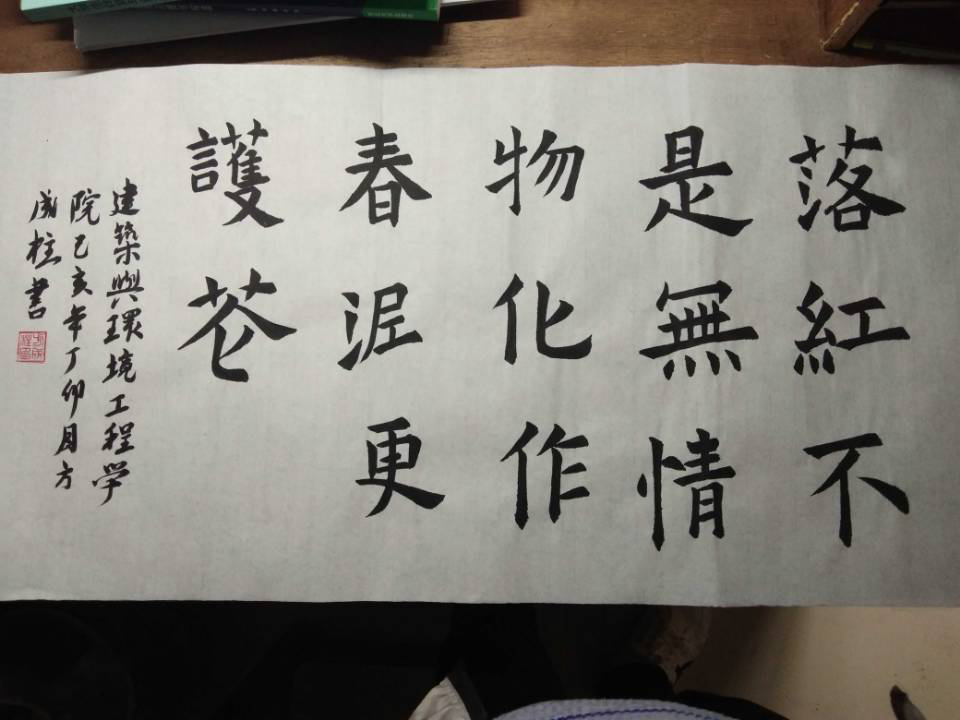 落紅不
是無情
物化作
春泥更
護花
建築與環境工程學
院己亥年丁卯月方
成柱書